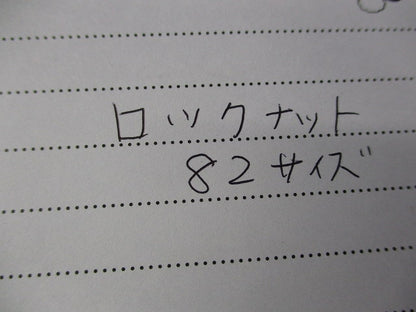 ロックナット
82サイズ